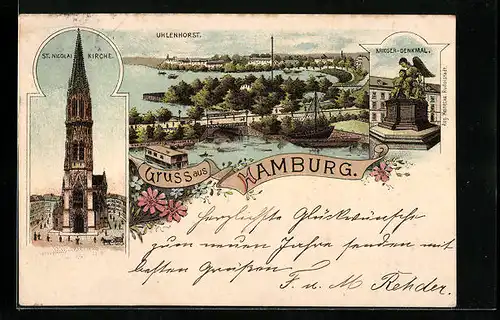 UHLENHORST.
ST. NICOLAI KIRCHE.
KRIEGER-DENKMAL.
GRUSS aus HAMBURG.
herzlichste Glückwünsche
zum neuen Jahre senden mit
besten Grüßen
F. u. M Rehder.